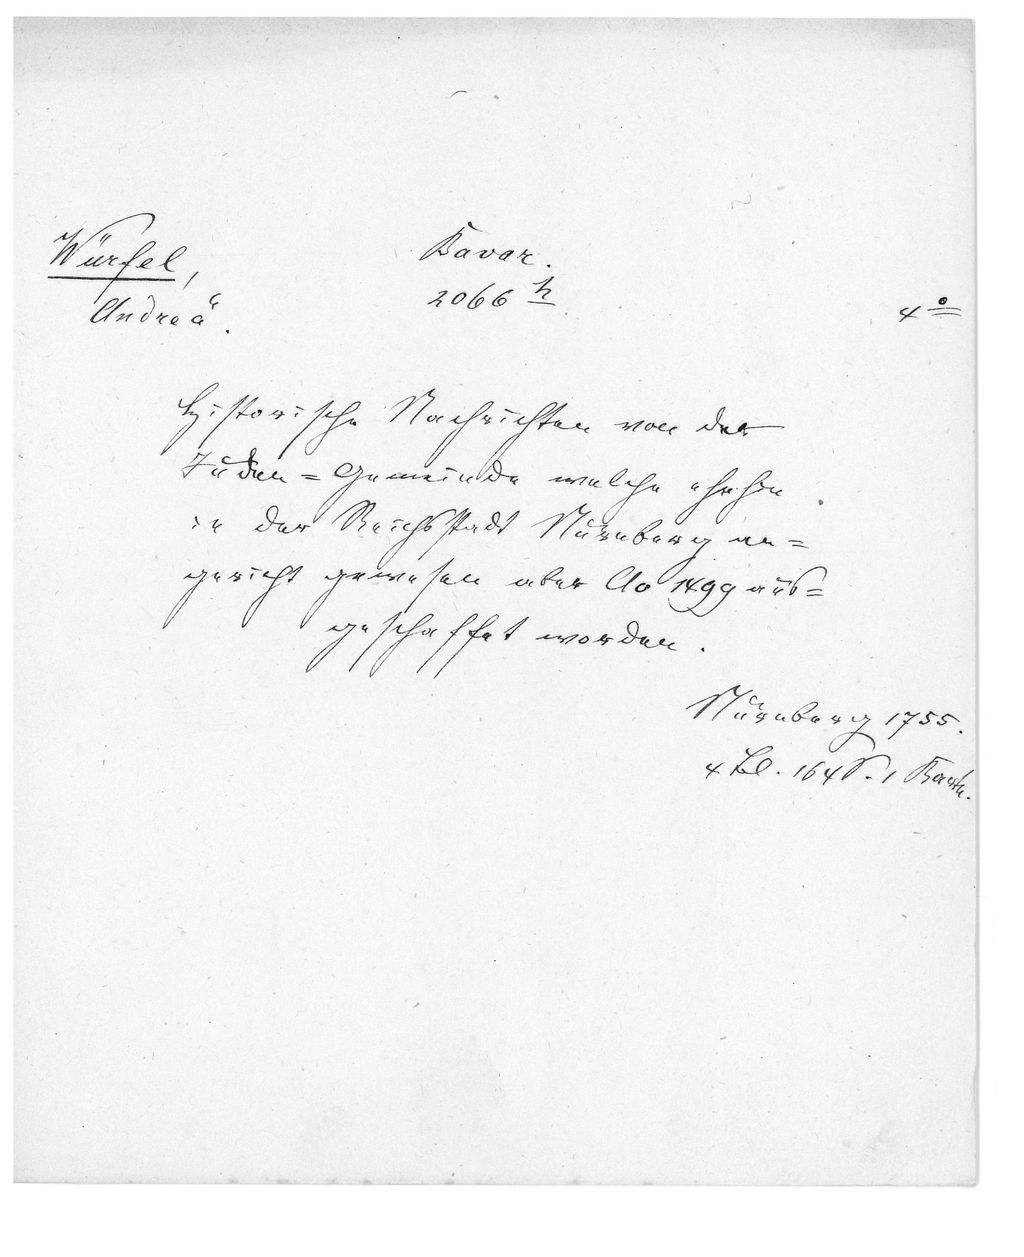 Würfel,
Andreä.
Bavar.
2066 h
4°
Historische Nachrichten von der
Juden=Gemeinde welche ehehin
in der Reichsstadt Nürnberg an=
gericht gewesen aber Ao 1499 aus=
geschaffet worden.
Nürnberg 1755.
4 Bl. 164 S. 1